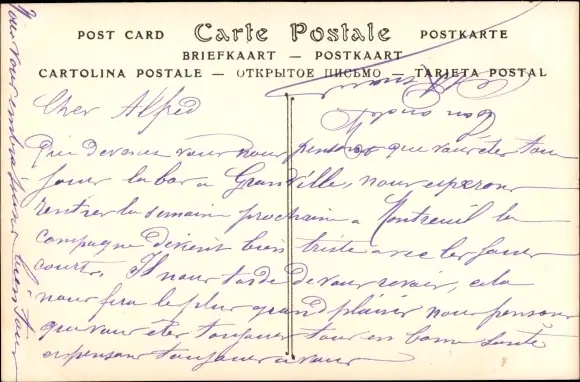 POST CARD Carte Postale POSTKARTE
BRIEFKAART — POSTKAART
CARTOLINA POSTALE — ОТКРЫТОЕ ПИСЬМО — TARJETA POSTAL
Cher Alfred
Que devenez vous nous pensons que vous êtes tou
jours la bas a Granville, nous esperons
rentrer la semaine prochaine a Montreuil la
compagne devient bien triste avec les jours
courts. Il nous tarde de vous revoir, cela
nous fera le plus grand plaisir nous pensons
que vous êtes toujours tous en bonne santé
et pensons toujours a vous
Nous vous embrassons bien tous